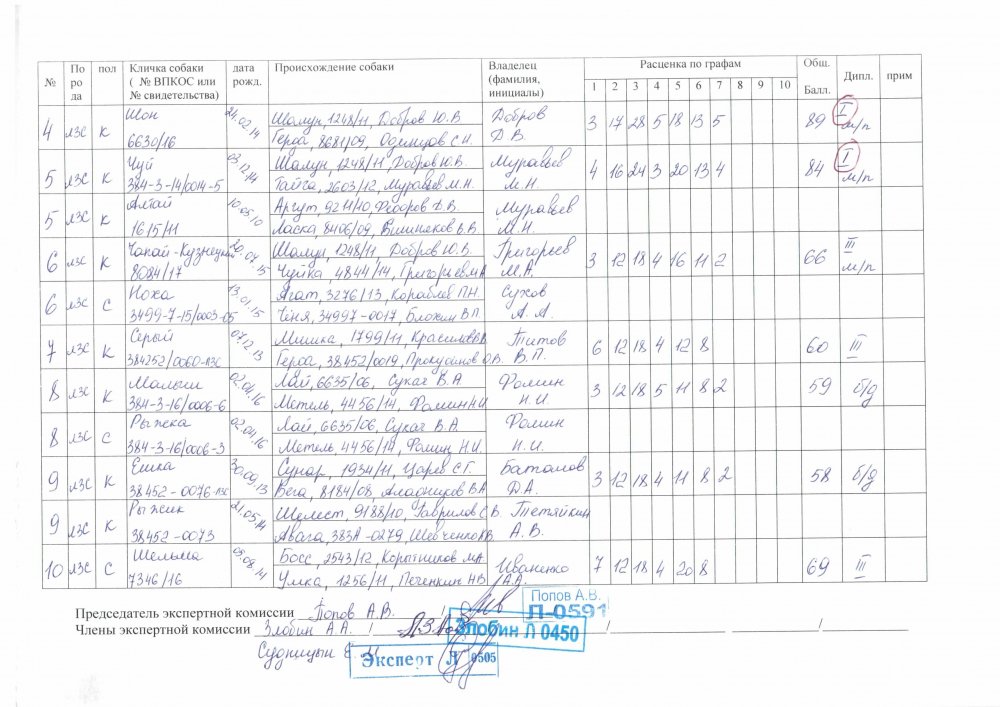 № По ро да пол Кличка собаки ( № ВПКОС или № свидетельства) дата рожд. Происхождение собаки Владелец (фамилия, инициалы) Расценка по графам Общ. Балл. Дипл. прим
1 2 3 4 5 6 7 8 9 10
4 лзс к Шон 24.02.14 Шалун, 1248/11, Добров Ю.В. Добров 3 17 28 5 18 13 5 89 I м/п
6630/16 Герда, 8681/09, Одинцов С.Н. Д.В.
5 лзс к Чуй 03.12.14 Шалун, 1248/11 Добров Ю.В. Муравьев 4 16 24 3 20 13 4 84 I м/п
384-3-14/0014-5 Тайга, 2603/12, Муравьев М.Н. М.Н.
5 лзс к Алтай 10.05.10 Аргут, 9211/10, Федоров Д.В. Муравьев
1615/11 Ласка, 8406/09, Вишняков В.В. М.Н.
6 лзс к Чапай-Кузнецкий Шалун, 1248/11, Добров Ю.В. Григорьев 3 12 18 4 16 11 2 66 III м/п
8084/17 Чуйка, 4844/14, Григорьев М.А. М.А.
6 лзс с Ноха 13.01.15 Агат, 3276/13, Кораблев П.Н. Сухов
3499-7-15/0003-05 34997-0017, В.П. А.А.
7 лзс к Серый 07.12.13 Мишка, 1799/11, Титов 6 12 18 4 12 8 60 III
384252/0060-лзс Герда, 38452/0019, О.В. В.П.
8 лзс к Малыш 02.04.16 Лай, 6635/06, Сукач В.А Фомин 3 12 18 5 11 8 2 59 б/д
384-3-16/0006-6 Метель, 4456/14, Фомин Н.И. Н.И.
8 лзс с Рыжка 02.04.16 Лай, 6635/06, Сукач В.А. Фомин
384-3-16/0006-3 Метель 4456/14, Фомин Н.И. Н.И.
9 лзс к Ешка 30.09.13 Сунар, 1934/11, Царев С.Г. Баталов 3 12 18 4 11 8 2 58 б/д
38452-0076-лзс Вега, 8184/08, В.А Д.А.
9 лзс к Рыжик 21.05.14 Шелест, 9188/10, Гаврилов С.В. Тетяйкин
38452-0073 383А-0279, Шевченко А.В.
10 лзс с Шельма 03.08.14 Босс, 2543/12, Корытников М.А. Иваненко 7 12 18 4 20 8 69 III
7346/16 Умка, 1256/11, Печенкин Н.В. (А.А.
Председатель экспертной комиссии Попов А.В. /
Попов А.В.
Л-0591
Члены экспертной комиссии Злобин А.А. /
Злобин Л 0450
Судницын
Эксперт Л 0505